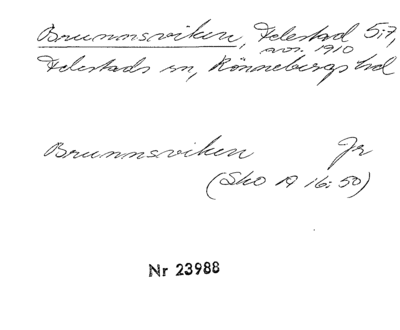 Brunnsviken, Felestad 5:7,
avs. 1910
Felestads sn, Rönnebergs hd
Brunnsviken Jr
(Sko A 16:50)
Nr 23988